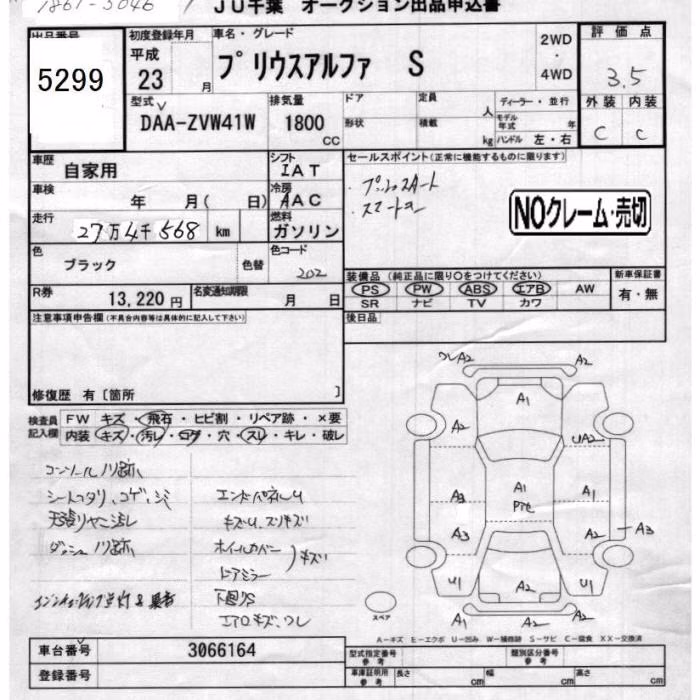 JU千葉 オークション出品申込書
出品番号 5299
初度登録年月 平成 23 月
車名・グレード プリウスアルファ S
2WD ・ 4WD
評価点 3.5
外装 内装
C C
型式 DAA-ZVW41W
排気量 1800 CC
ドア 定員 人
形状 積載 kg
ディーラー・並行
モデル年式 年
ハンドル 左・右
車歴 自家用
シフト IAT
車検 年 月( 日)
冷房 AAC
走行 27万4千568 km
燃料 ガソリン
色 ブラック 色替
色コード 202
R券 13,220 円
名変通知期限 月 日
セールスポイント(正常に機能するものに限ります)
・プッシュスタート
・スマートキー
NOクレーム・売切
装備品(純正品に限り○をつけてください)
PS PW ABS エアB AW
SR ナビ TV カワ
新車保証書
有・無
後日品
注意事項申告欄(不具合内容等は具体的に記入して下さい)
修復歴 有〔箇所 〕
検査員記入欄
FW キズ・飛石・ヒビ割・リペア跡・×要
内装 キズ・汚レ・コゲ・穴・スレ・キレ・破レ
コンソールノリ跡
シートヘタリ、コゲ、シミ
天張りヤニ汚レ
ダッシュノリ跡
エンドパネルU
キズU、スリキズ
ホイールカバー
ドアミラー
キズ
下回りS
エアロキズ、ワレ
ワレA2 A2
A1
A2 UA2
A3 A1 A1
Pte
A3 A2 A3
U1 A2 U1
A1 A2 A2
スペア
A-キズ E-エクボ U-凹み W-補修跡 S-サビ C-腐食 XX-交換済
車台番号 3066164
登録番号
型式指定番号 参考
類別区分番号 参考
車庫証明用 参考
長さ cm 幅 cm 高さ cm